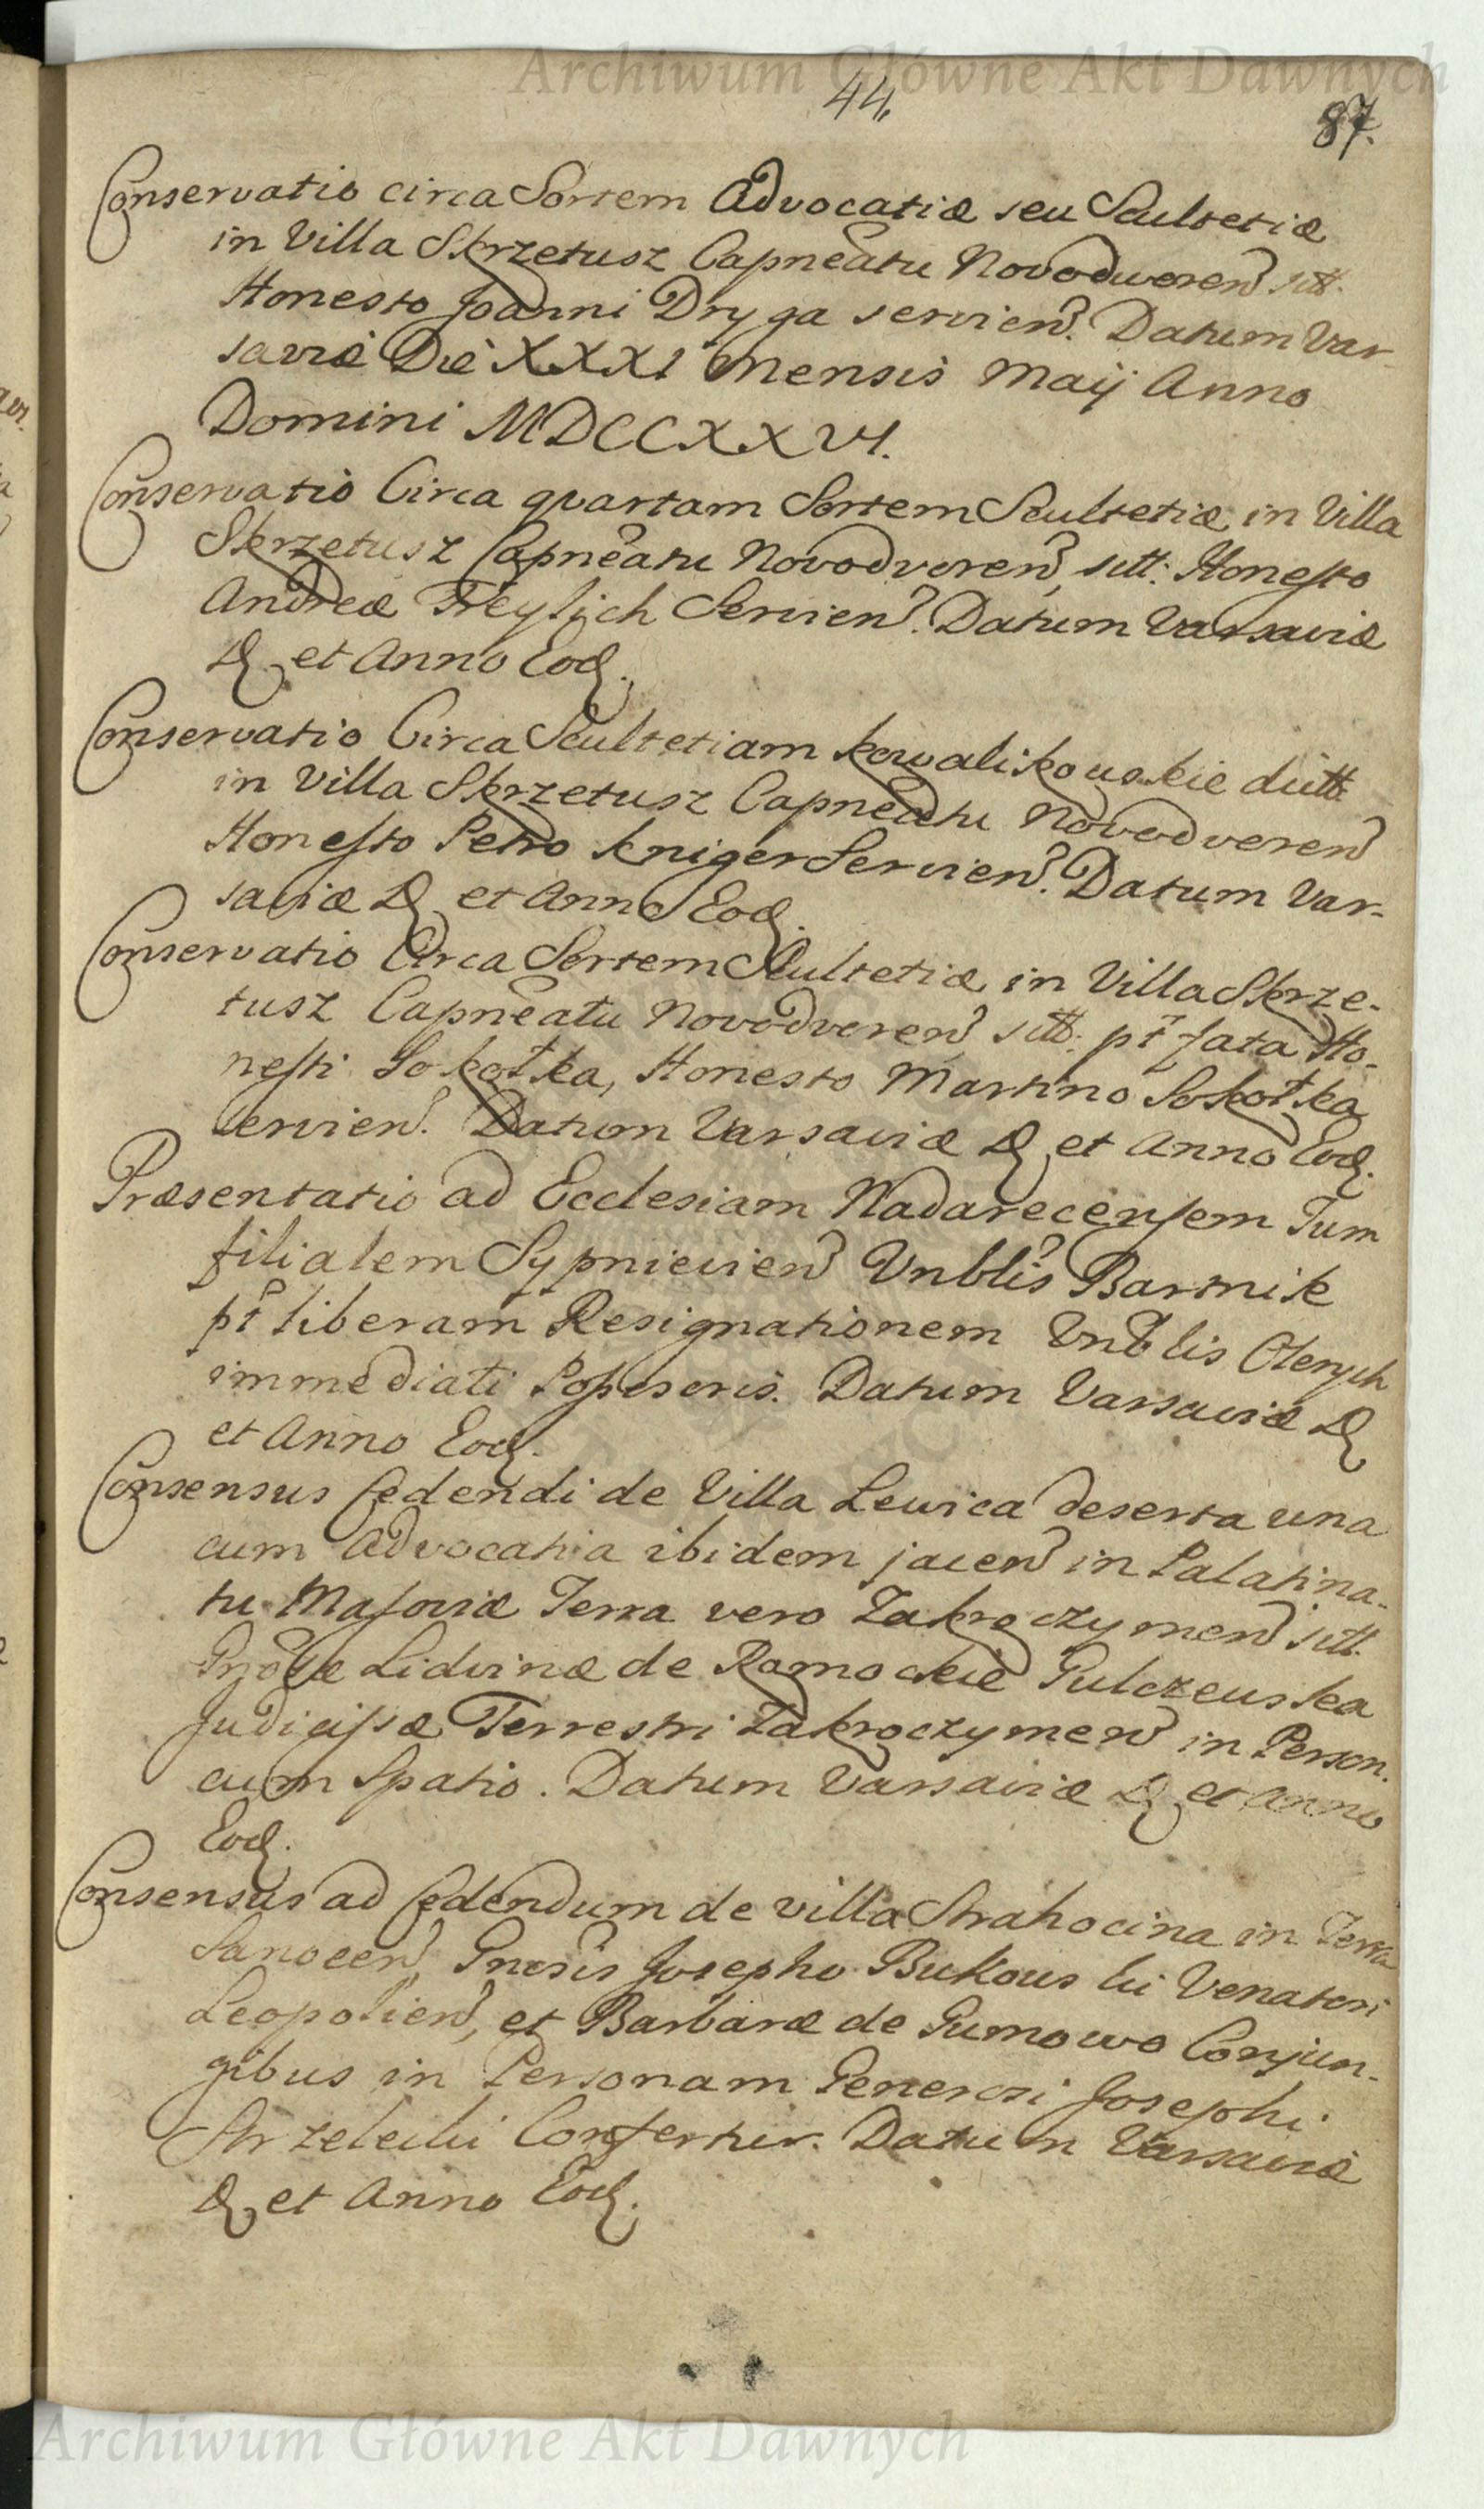 Archiwum Główne Akt Dawnych
44.
87.
Conservatio circa Sortem Advocatiæ seu Scultetiæ
in Villa Skrzetusz Capneatu Novodworen sitt.
Honesto Joanni Dryga servien. Datum Var-
saviæ Die XXXI Mensis Maij Anno
Domini MDCCXXVI.
Conservatio Circa quartam Sortem Scultetiæ in Villa
Skrzetusz Capneatu Novodvoren, sitt: Honesto
Andreæ Freylich Servien. Datum Varsaviæ
D et Anno Eod.
Conservatio Circa Scultetiam kowalikouskie dictt
in Villa Skrzetusz Capneatu Novodvoren
Honesto Petro kniger Servien. Datum Var-
saviæ D et Anno Eod.
Conservatio Circa Sortem Scultetiæ in Villa Skrze-
tusz Capneatu Novodvoren sitt. pt fata Ho-
nesti Sokołka, Honesto Martino Sokołka
servien. Datum Varsaviæ D et Anno Eod.
Præsentatio ad Ecclesiam Nadarecensem Tum
filialem Sypnievien Vnblis Bartnik
pt liberam Resignationem Vnblis Olenych
immediati Possesoris. Datum Varsaviæ D
et Anno Eod.
Consensus Cedendi de Villa Lewica deserta una
cum Advocatia ibidem jacen in Palatina-
tu Masoviæ Terra vero Zakroczymen sitt.
Gnosæ Lidvinæ de Ramockie Gulczeuska
Judicissæ Terrestri Zakroczymen in Person.
cum Spatio. Datum Varsaviæ D et Anno
Eod.
Consensus ad Cedendum de villa Strahocina in Terra
Sanocen, Gnosis Josepho Bukouski Venatori
Leopolien, et Barbaræ de Gumowo Conjun-
gibus in Personam Generosi Josephi
Strzelecki Confertur. Datum Varsaviæ
D et Anno Eod.
Archiwum Główne Akt Dawnych